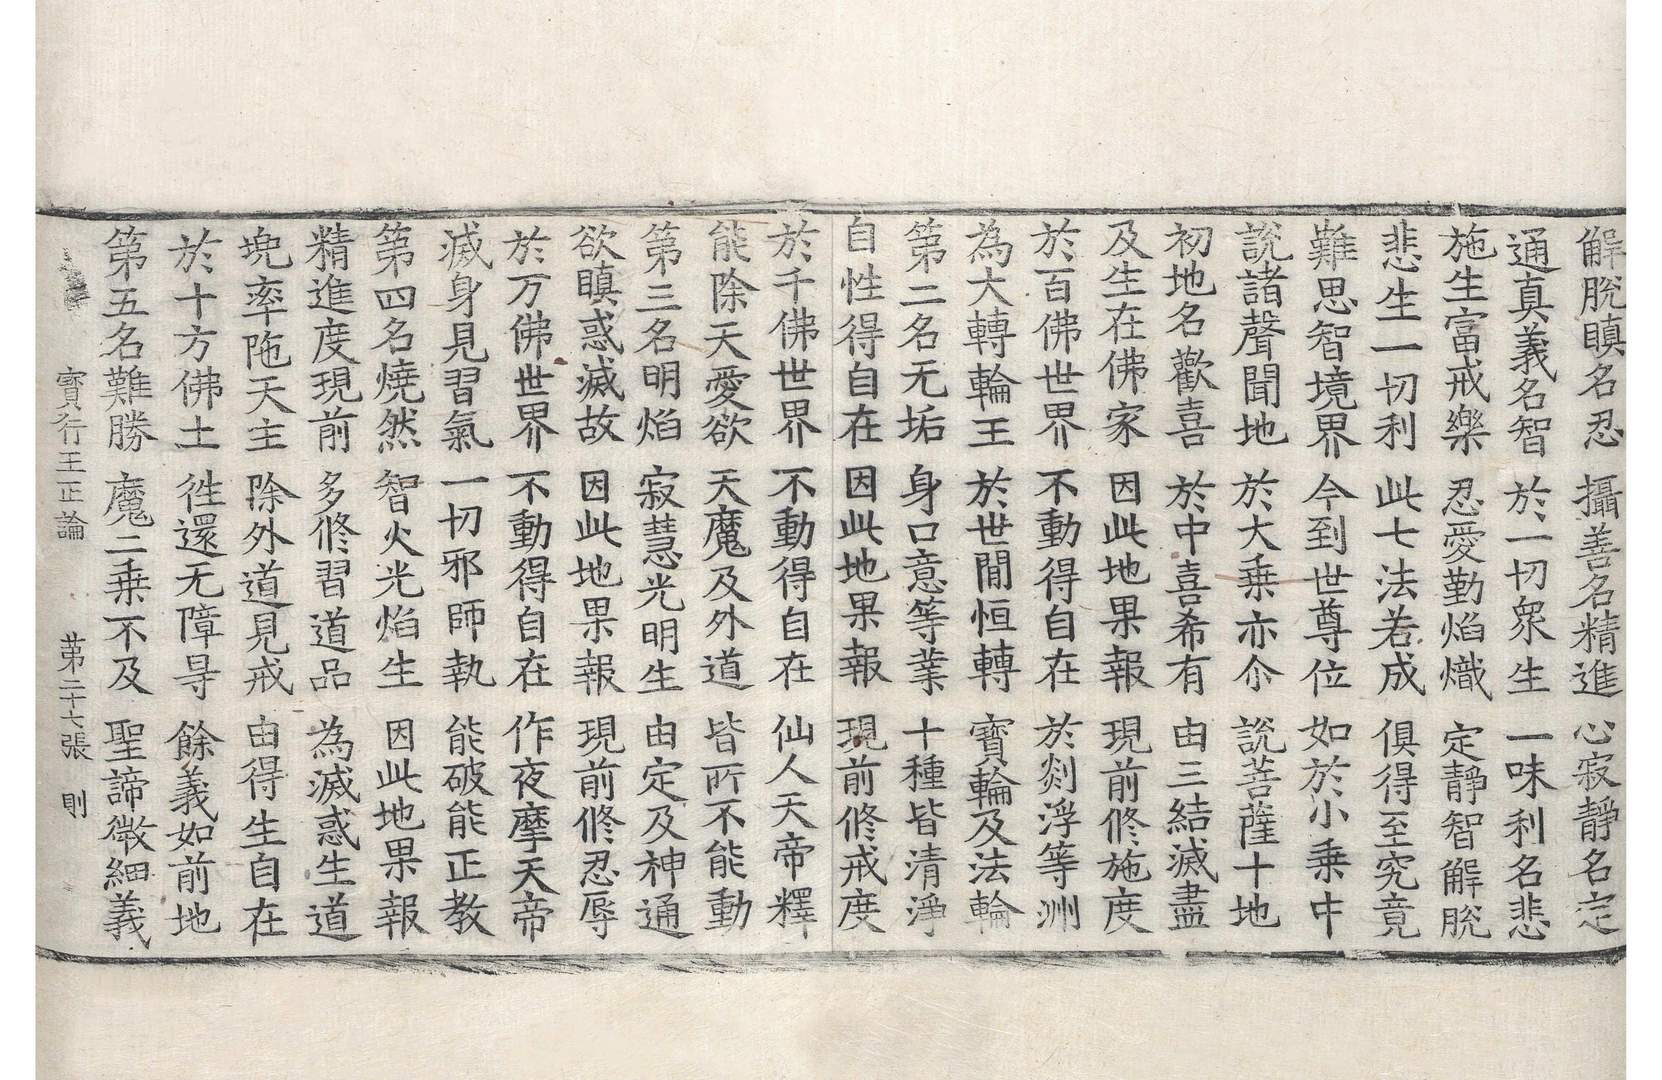 解脫瞋名忍　攝善名精進　心寂靜名定
通真義名智　於一切衆生　一味利名悲
施生富戒樂　忍愛勤焰熾　定靜智解脫
悲生一切利　此七法若成　俱得至究竟
難思智境界　今到世尊位　如於小乗中
說諸聲聞地　於大乗亦尒　說菩薩十地
初地名歡喜　於中喜希有　由三結滅盡
及生在佛家　因此地果報　現前修施度
於百佛世界　不動得自在　於剡浮等洲
為大轉輪王　於世間恒轉　寶輪及法輪
第二名无垢　身口意等業　十種皆清淨
自性得自在　因此地果報　現前修戒度
於千佛世界　不動得自在　仙人天帝釋
能除天愛欲　天魔及外道　皆所不能動
第三名明焰　寂慧光明生　由定及神通
欲瞋惑滅故　因此地果報　現前修忍辱
於万佛世界　不動得自在　作夜摩天帝
滅身見習氣　一切邪師執　能破能正教
第四名燒然　智火光焰生　因此地果報
精進度現前　多修習道品　為滅惑生道
兠率陁天主　除外道見戒　由得生自在
於十方佛土　徃還无障㝵　餘義如前地
第五名難勝　魔二乗不及　聖諦微細義
寶行王正論　第二十七張　則